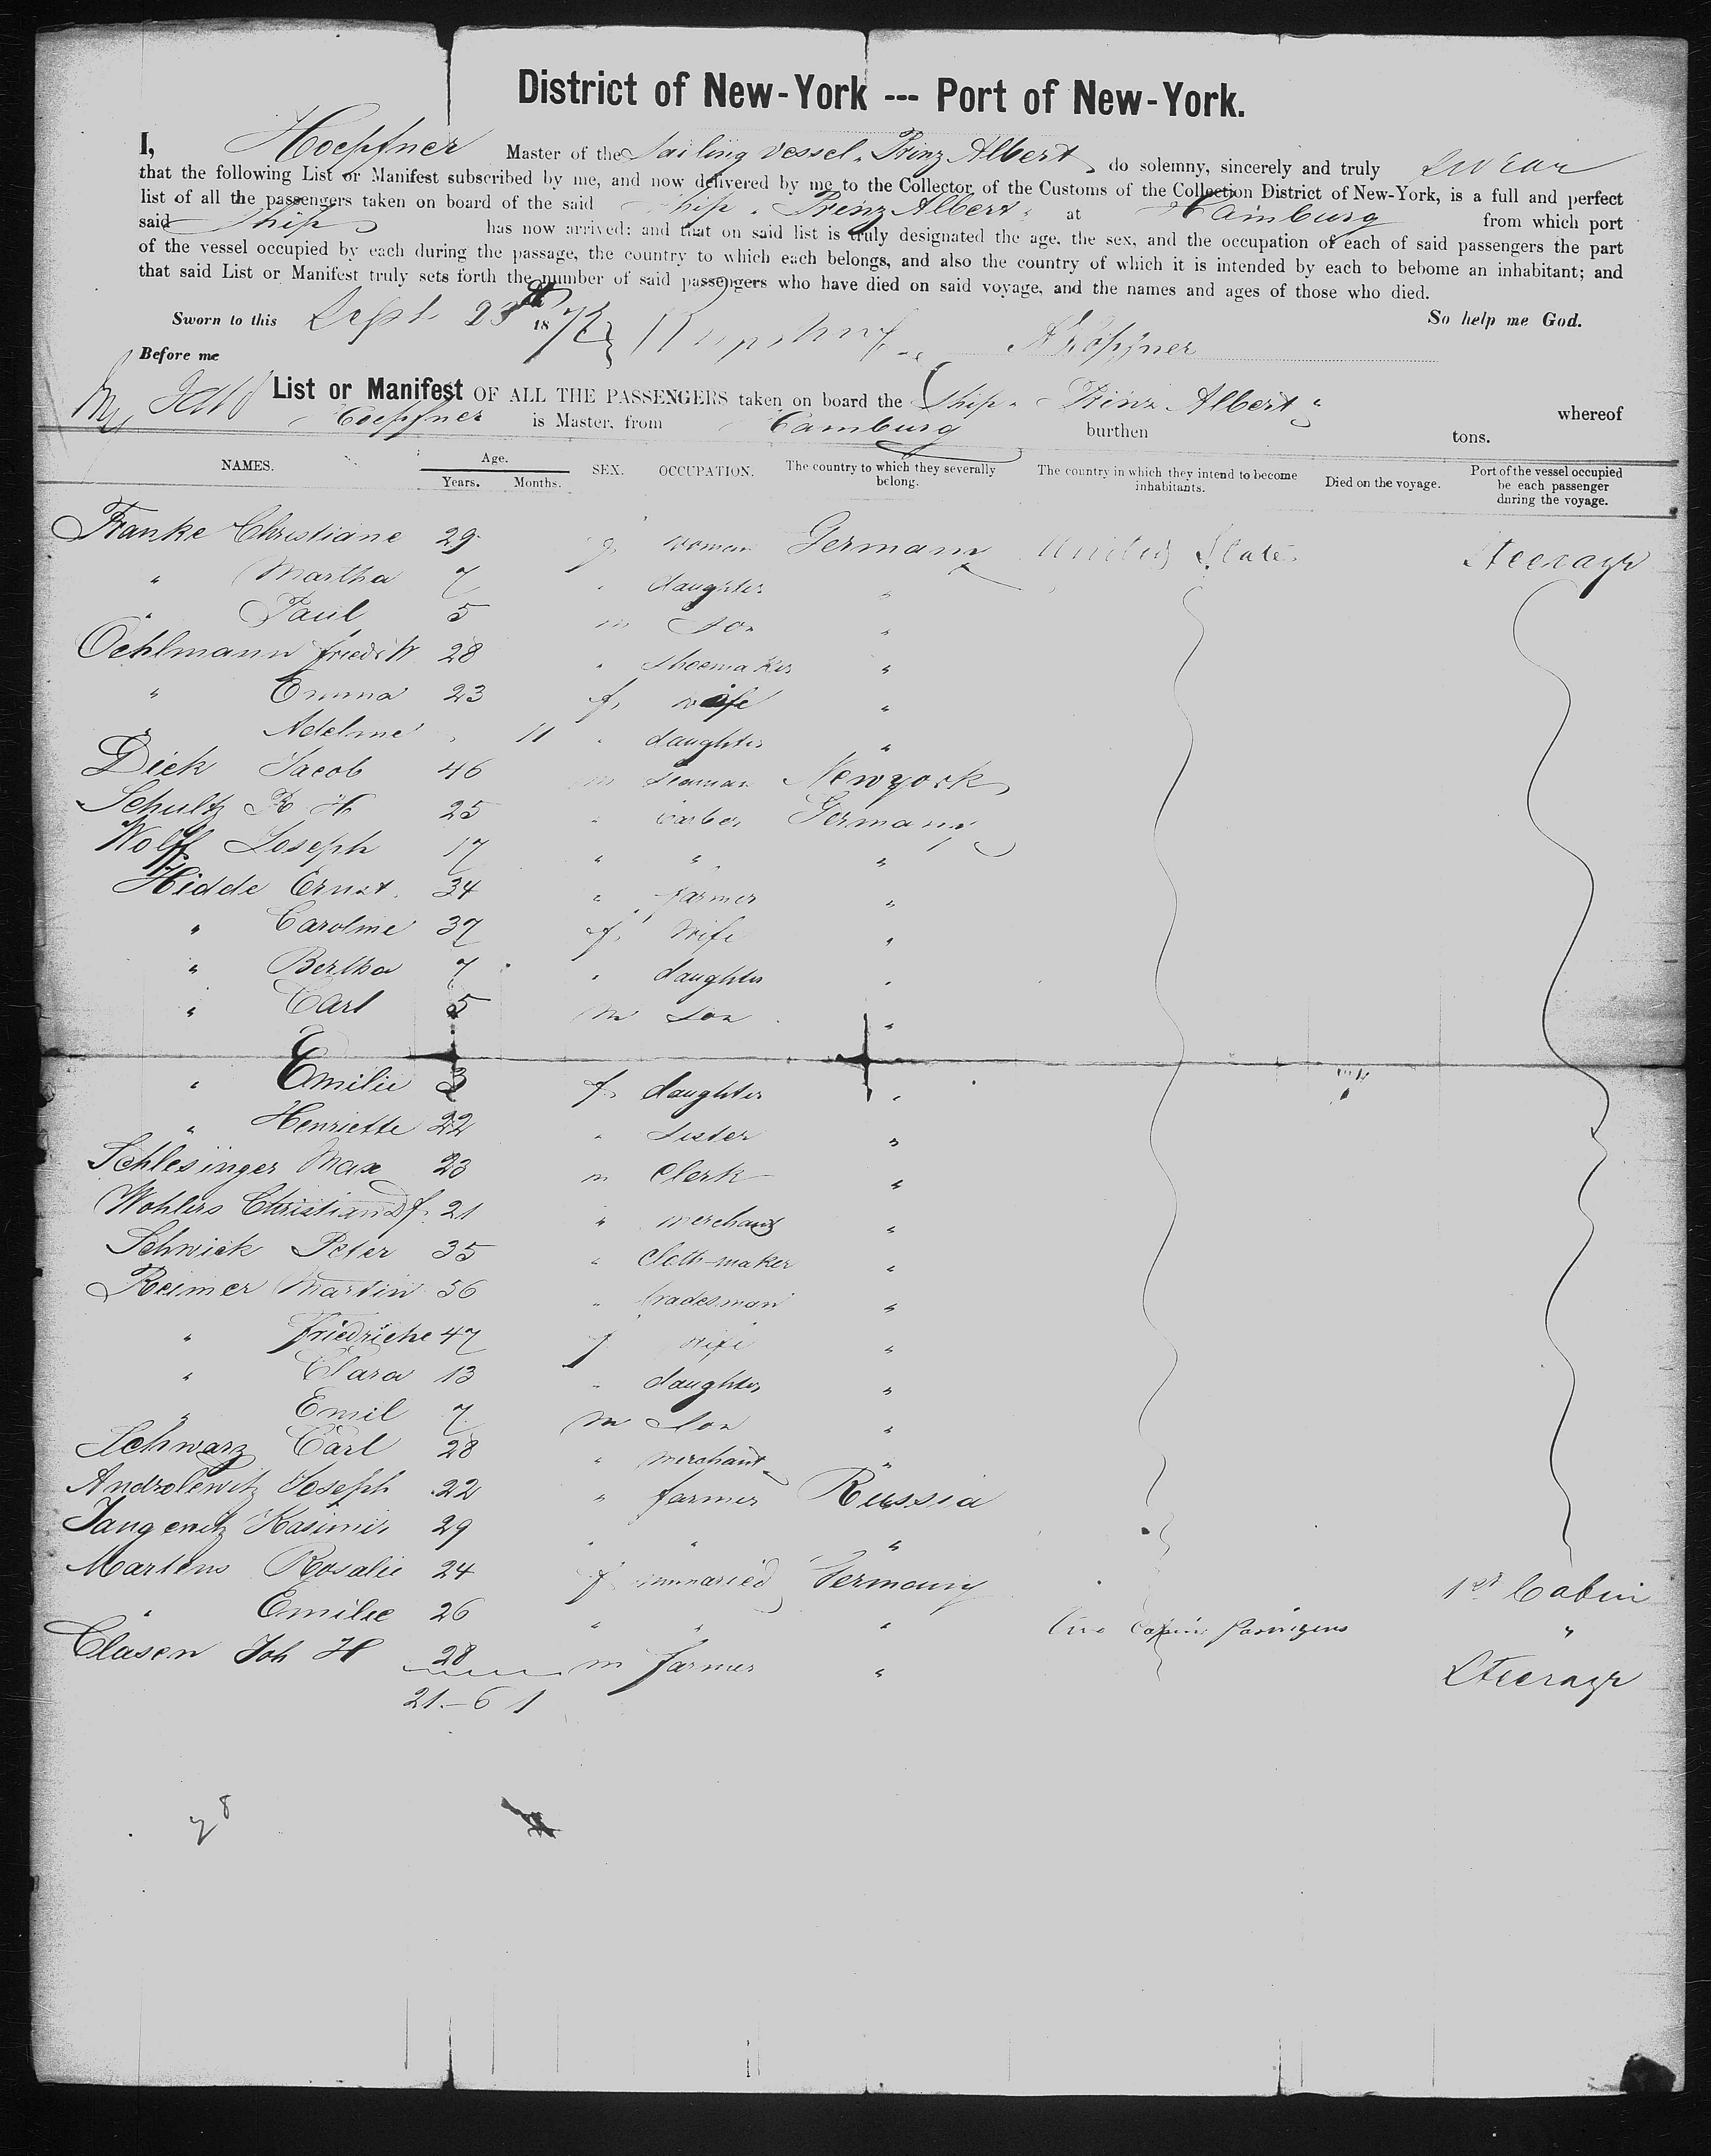 District of New-York --- Port of New-York.
I, Hoepfner Master of the Sailing vessel „ Prinz Albert, do solemny, sincerely and truly swear
that the following List or Manifest subscribed by me, and now delivered by me to the Collector of the Customs of the Collection District of New-York, is a full and perfect
list of all the passengers taken on board of the said Ship „ Prinz Albert “ at Hamburg from which port
said Ship has now arrived: and that on said list is truly designated the age, the sex, and the occupation of each of said passengers the part
of the vessel occupied by each during the passage, the country to which each belongs, and also the country of which it is intended by each to bebome an inhabitant; and
that said List or Manifest truly sets forth the number of said passengers who have died on said voyage, and the names and ages of those who died.
Sworn to this Sept 23 18 So help me God.
Before me Höpfner
List or Manifest OF ALL THE PASSENGERS taken on board the Ship „ Prinz Albert “ whereof
Hoepfner is Master, from Hamburg burthen tons.
NAMES. Age. Years. Months. SEX. OCCUPATION. The country to which they severally belong. The country in which they intend to become inhabitants. Died on the voyage. Port of the vessel occupied be each passenger during the voyage.
Franke Christiane 29 woman Germany United States Steerage
" Martha 7 " daughter "
" Paul 5 m Son "
Oehlmann Friedr W 28 " Shoemaker "
" Emma 23 f. wife "
" Adeline 11 " daughter "
Dick Jacob 46 m Seaman Newyork
Schultz R H 25 " barber Germany
Wolff Joseph 17 " " "
Hidde Ernst 34 " farmer "
" Caroline 37 f. Wife "
" Bertha 7 " daughter "
" Carl 5 m Son "
" Emilie 3 f. daughter "
" Henriette 22 " Sister "
Schlesinger Max 23 m Clerk "
Wohlers Christian D f. 21 " merchant "
Schwick Peter 35 " Cloth-maker "
Reimer Martin 56 " tradesman "
" Friedriche 47 f wife "
" Clara 13 " daughter "
" Emil 7 m Son "
Schwarz Carl 28 " merchant "
Androlewitz Joseph 22 " farmer Russia
Kasimir 29 " " "
Martens Rosalie 24 f unmaried Germany 1st Cabin
" Emilie 26 " " " two Cabin Passengers "
Clasen Joh H 28 m farmer " Steerage
21 - 6 1
28